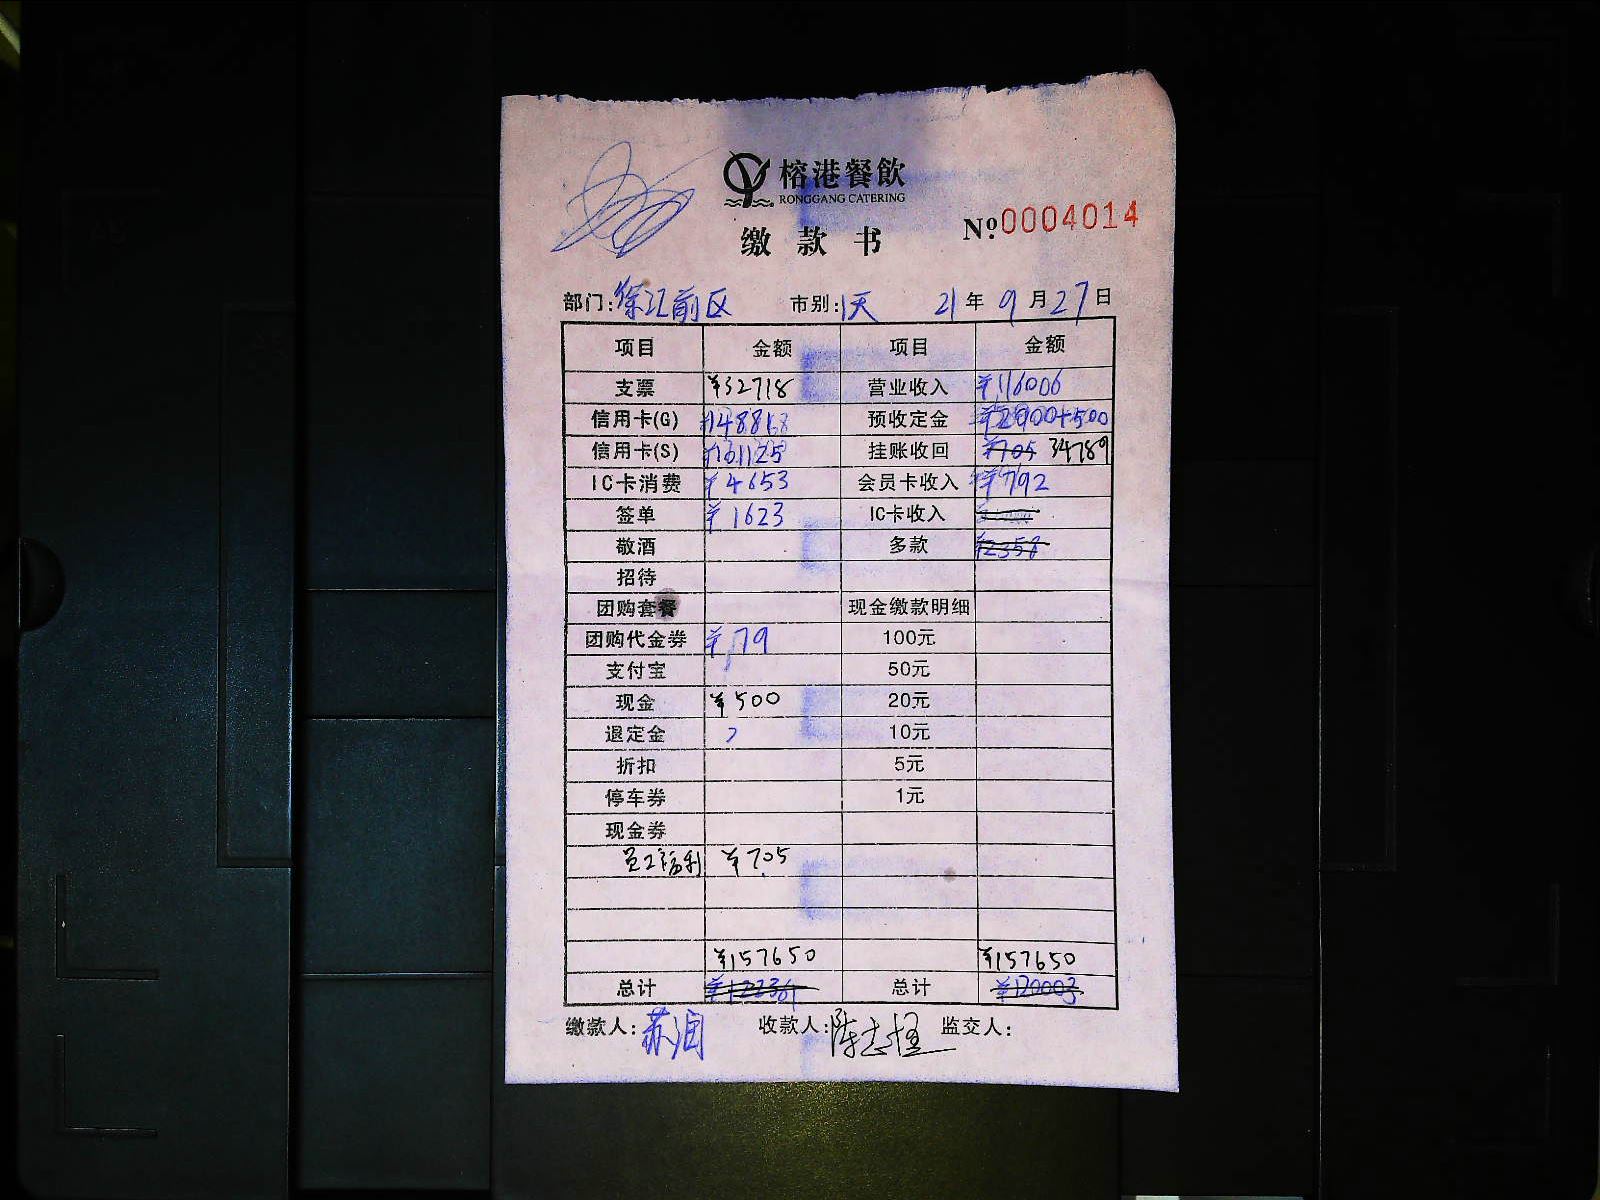 榕港餐飲
RONGGANG CATERING
缴款书
№0004014
部门:徐汇前区 市别:1天 21年9月27日
项目 金额 项目 金额
支票 ¥32718 营业收入 ¥116006
信用卡(G) 预收定金
信用卡(S) 挂账收回 ¥705 34789
IC卡消费 ¥4653 会员卡收入 ¥792
签单 ¥1623 IC卡收入
敬酒 多款 ¥2358
招待
团购套餐 现金缴款明细
团购代金券 ¥79 100元
支付宝 50元
现金 ¥500 20元
退定金 10元
折扣 5元
停车券 1元
现金券
员工福利 ¥705
¥157650 ¥157650
总计 总计 ¥120003
缴款人:苏润 收款人: 监交人: